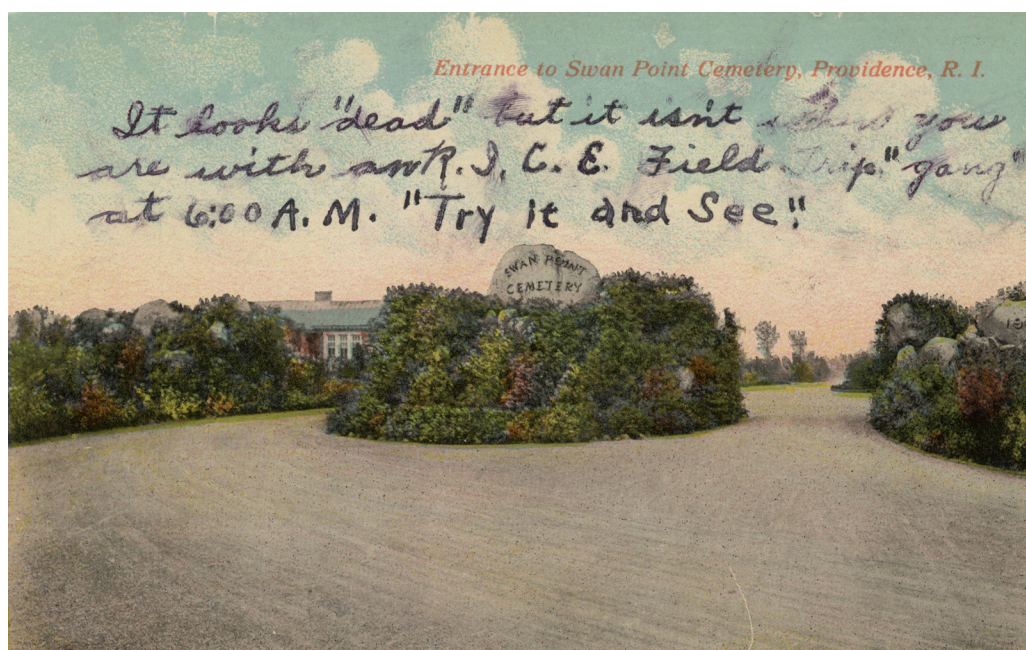 Entrance to Swan Point Cemetery, Providence, R. I.
It looks "dead" but it isn't when you
are with an R. I. C. E. Field Trip "gang"
at 6:00 A. M. "Try it and See"!
SWAN POINT
CEMETERY